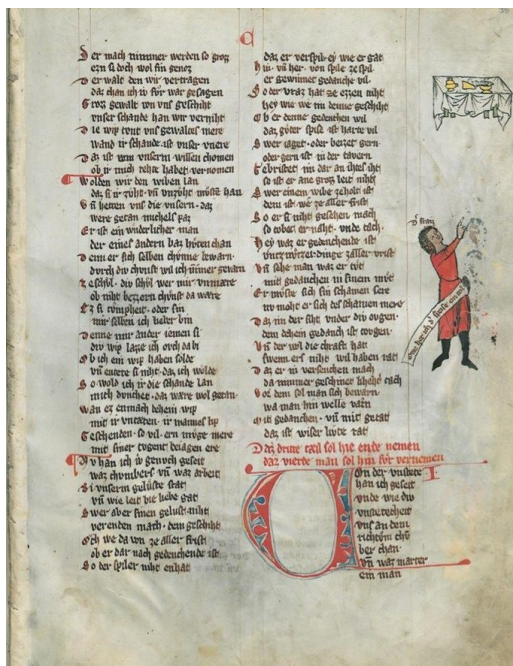 Der mach nimmer werden so groz
ezn si doch wol sin genoz
Der walt den wir vertragen
daz chan ich iv für war gesagen
Groz gewalt von vns geschiht
vnser schande han wir verniht
Die wip tvont vns gewaltes mere
wand ir schande ist vnser vnere
Daz ist von vnserm willen chomen
ob ir mich rehte habet vernomen
Wolden wir den wiben lan
daz si ir zuht vn vnzuht mvste han
Vn hetten vns die vnsern daz
were getan michels paz
Er ist ein wnderlicher man
der eines andern baz hvten chan
Denner sich selben chvnne bewarn
durch div christ wil ich immer gevarn
ob niht bezzern christ da were
Ez si rompheit oder sin
mir selben ich lieber bin
Denne mir ander iemen si
div wip lazze ich ovch da bi
Ob ich ein wip haben solde
vn entete si niht daz ich wolde
So wold ich ir die schande lan
mich dvnchet daz were wol getan
Wan ez enmach dehein wip
mit ir vntaten ir mannes lip
Geschenden so vil ern mvge mere
mit siner tvgent bejagen ere
Nv han ich iv genvch geseit
waz chvmbers vn waz arbeit
Si vnserm geluste stat
vn wie leit bie liebe gat
Swer aber sinen gelust niht
verenden mach dem geschiht
Och we da von ze aller frist
ob er dar nach gedenchende ist
So der spiler niht enhat
daz er verspil ey wie er gat
hin vn her von spile ze spil
er gewinnet gedanche vil
So der vraz hat ze ezzen niht
hey wie we im denne geschiht
Ob er denne gedenchen wil
daz gvter spise ist harte vil
Swer iaget oder beizet gern
oder gern ist in der tavern
Gebristet im dar an ihtes iht
so ist er ane groz leit niht
Swer einem wibe ze holt ist
dem ist we ze aller frist
So er si niht gesehen mach
so tobet er naht vnde tach
Hey waz er gedenchende ist
vnzimlicher dinge zaller vrist
Vn sehe man waz er tvt
mit gedanchen in sinem mvt
Er mvste sich sin schamen sere
nv moht er sich des schamen mere
Daz in der siht vnder div ovgen
dem dehein gedanch ist tovgen
Vn der wil die chraft hat
swenn ers niht wil haben rat
Daz er in versenchen mach
da nimmer geschinet liehter tach
Vor dem sol man sich bewarn
wa man hin welle varn
Mit gedanchen vn mit getat
daz ist wiser livte rat
Daz dritte tæil sol hie ende nemen
daz vierde man sol hin für vernemen
Von der vnstete
han ich geseit
vnde wie div
vnstetecheit
vns an dem
richtvm chv
ber chan
vn waz marter
ein man